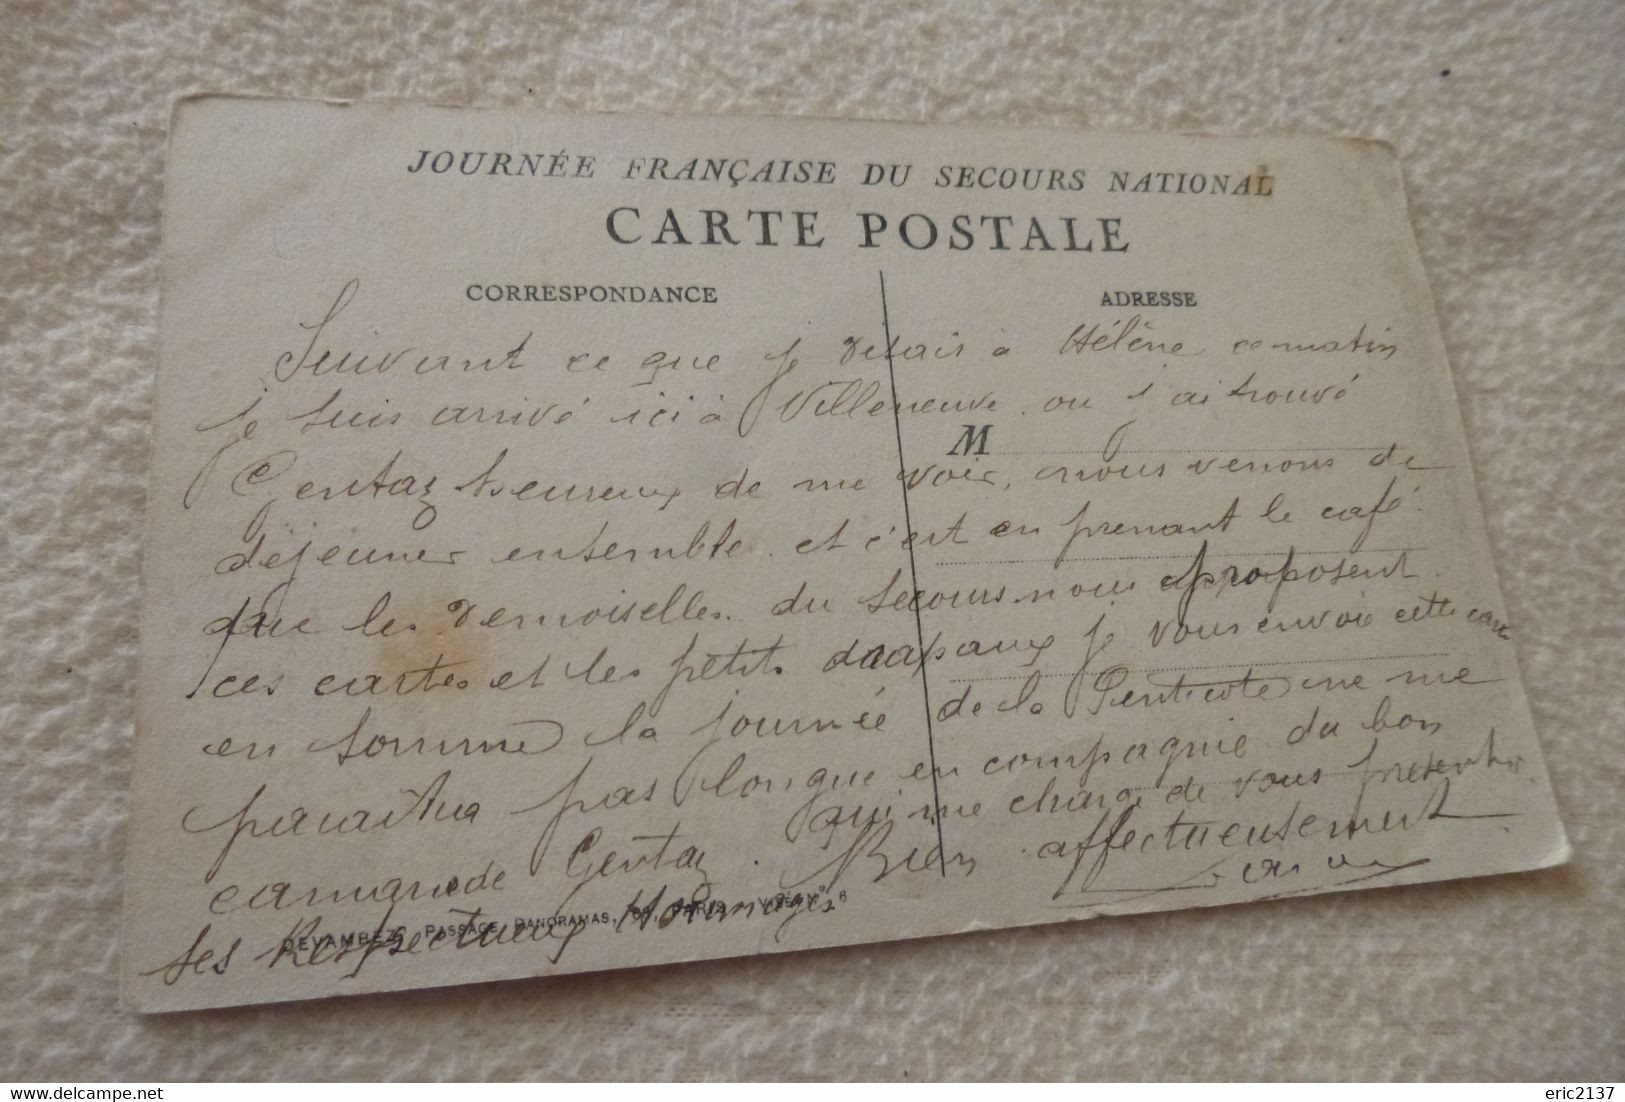 JOURNÉE FRANÇAISE DU SECOURS NATIONAL
CARTE POSTALE
CORRESPONDANCE
ADRESSE
Suivant ce que je disais à Hélène ce matin
je suis arrivé ici à Villeneuve ou j'ai trouvé
M
Gentaz heureux de me voir, nous venons de
déjeuner ensemble et c'est en prenant le café
que les Demoiselles du Secours nous proposent
ces cartes et les petits drapaux je vous envoie cette carte
en somme la journée de la Penticote ne me
paraîtra pas longue en compagnie du bon
camarade Gentaz qui me charge de vous présenter
ses Respectueux Hommages Bien affectueusement
DEVAMBEZ, PASSAGE PANORAMAS, PARIS
eric2137